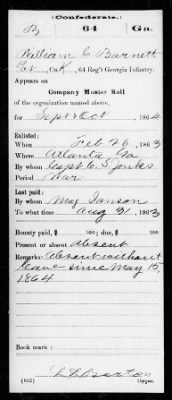 (Confederate.)
B 64 Ga.
William C. Barnett
Pvt, Co. K, 64 Reg't Georgia Infantry.
Appears on
Company Muster Roll
of the organization named above,
for Sept & Oct, 1864
Enlisted:
When Feb 26, 1863
Where Atlanta Ga
By whom Capt C. S. Jenks
Period War
Last paid:
By whom Maj Janson
To what time Aug 31, 1863
Bounty paid $ 100; due $ 100
Present or absent Absent
Remarks: Absent without
leave since May 15,
1864
Book mark:
(642) Copyist.